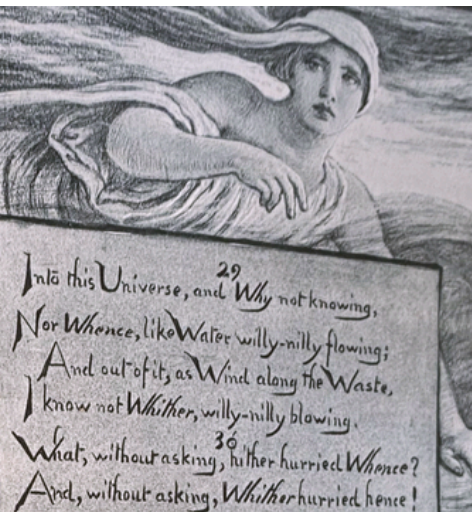 29
Into this Universe, and Why not knowing,
Nor Whence, like Water willy-nilly flowing;
And out of it, as Wind along the Waste,
I know not Whither, willy-nilly blowing.
30
What, without asking, hither hurried Whence?
And, without asking, Whither hurried hence!